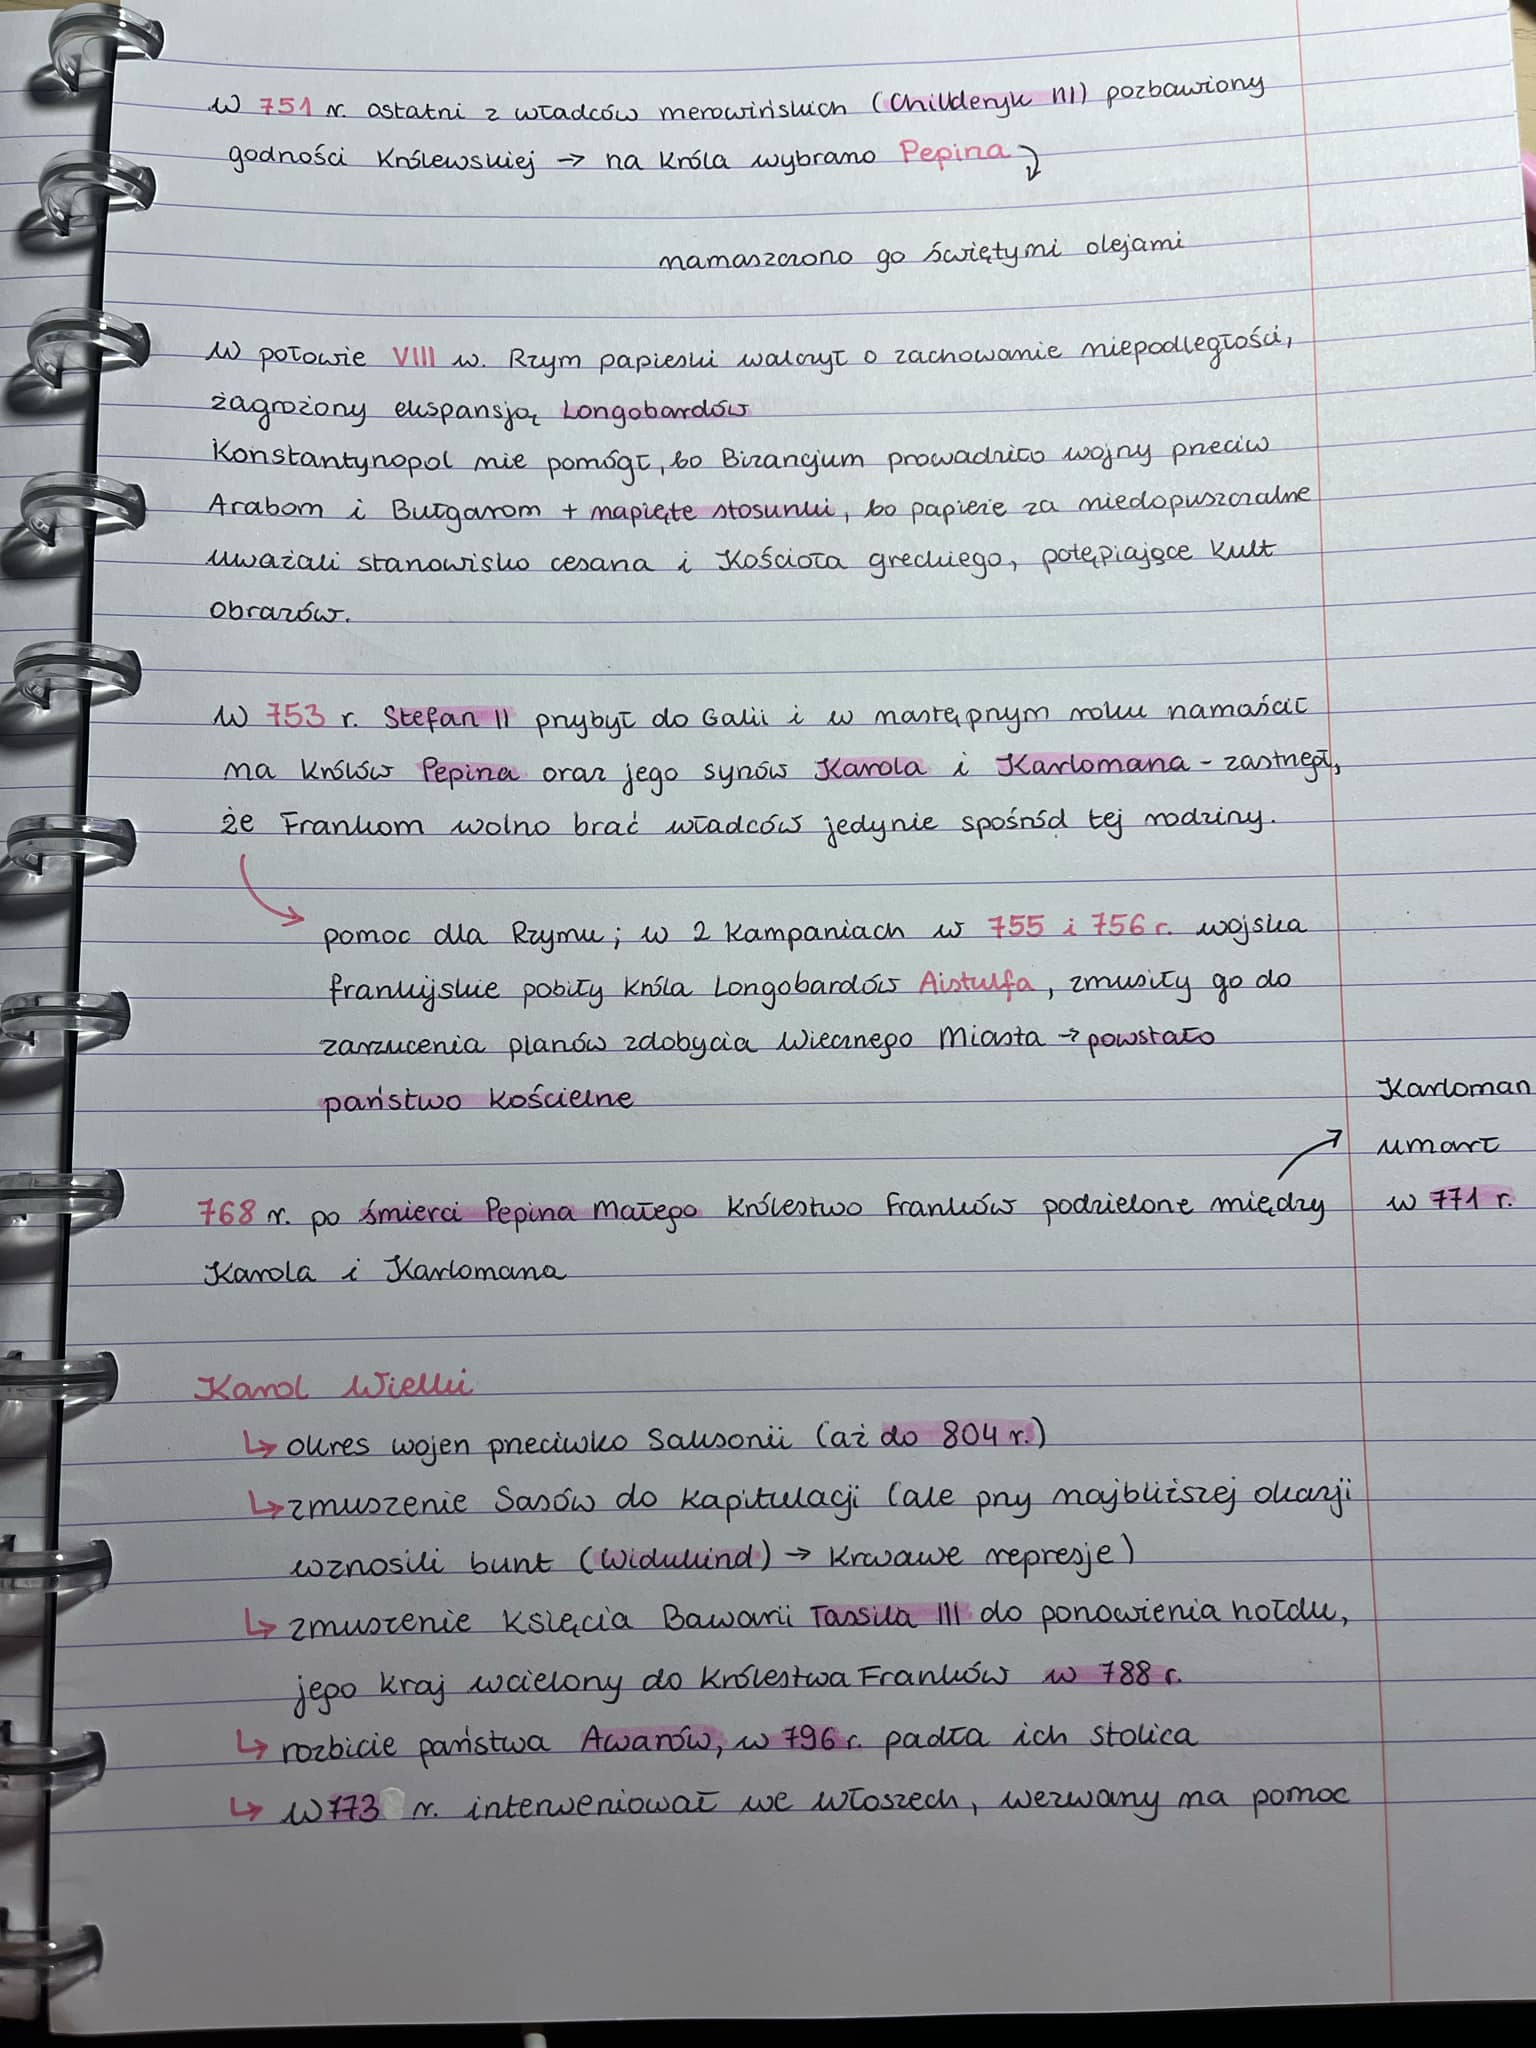 w 751 r. ostatni z władców merowińskich (Childeryk III) pozbawiony
godności królewskiej → na króla wybrano Pepina
namaszczono go świętymi olejami
W połowie VIII w. Rzym papieski walczył o zachowanie niepodległości,
zagrożony ekspansją Longobardów
Konstantynopol nie pomógł, bo Bizancjum prowadziło wojny przeciw
Arabom i Bułgarom + napięte stosunki, bo papieże za niedopuszczalne
uważali stanowisko cesarza i Kościoła greckiego, potępiające kult
obrazów.
W 753 r. Stefan II przybył do Galii i w następnym roku namaścił
na królów Pepina oraz jego synów Karola i Karlomana - zastrzegł,
że Frankom wolno brać władców jedynie spośród tej rodziny.
pomoc dla Rzymu; w 2 kampaniach w 755 i 756 r. wojska
frankijskie pobiły króla Longobardów Aistulfa, zmusiły go do
zarzucenia planów zdobycia Wiecznego Miasta → powstało
państwo kościelne
Karloman
umarł
w 771 r.
768 r. po śmierci Pepina Małego królestwo Franków podzielone między
Karola i Karlomana
Karol Wielki
↳ okres wojen przeciwko Saksonii (aż do 804 r.)
↳ zmuszenie Sasów do kapitulacji (ale przy najbliższej okazji
wznosili bunt (Widukind) → krwawe represje)
↳ zmuszenie księcia Bawarii Tassila III do ponowienia hołdu,
jego kraj wcielony do królestwa Franków w 788 r.
↳ rozbicie państwa Awarów, w 796 r. padła ich stolica
↳ w 773 r. interweniował we Włoszech, wezwany na pomoc